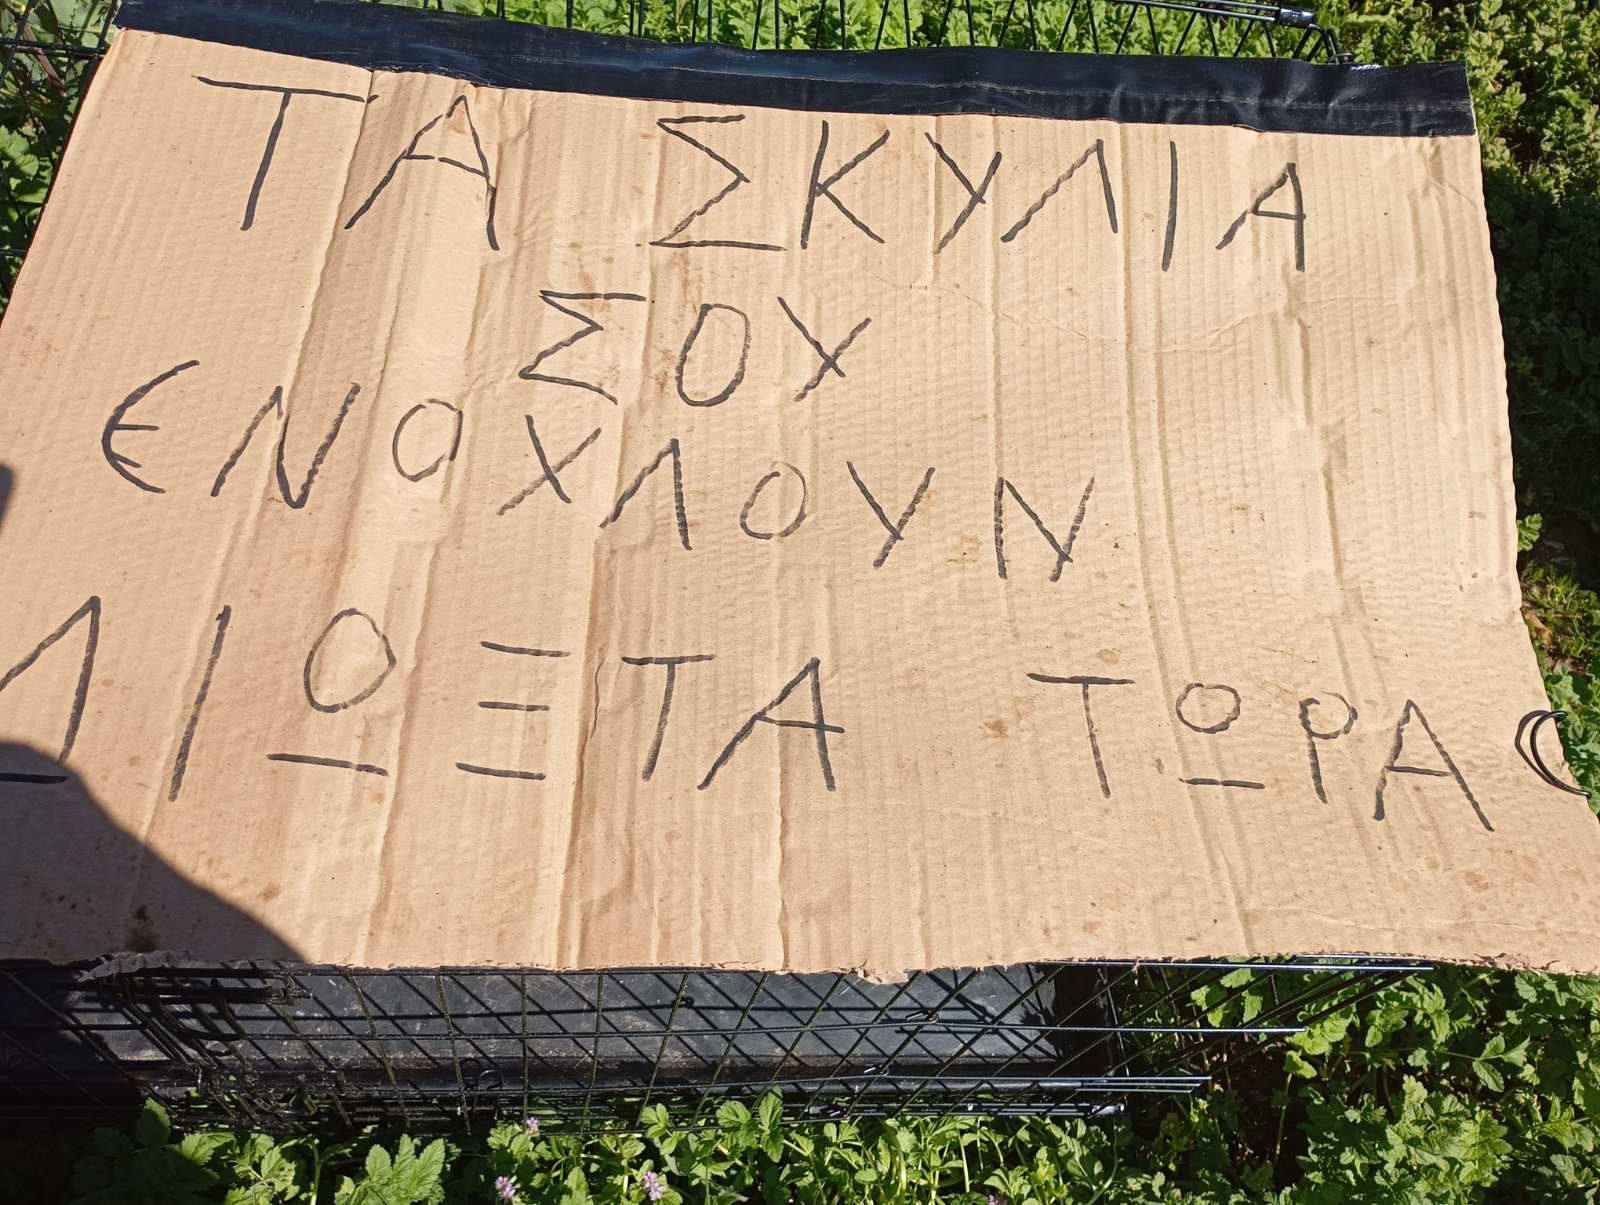 ΤΑ ΣΚΥΛΙΑ
ΣΟΥ
ΕΝΟΧΛΟΥΝ
ΔΙΩΞΤΑ ΤΩΡΑ